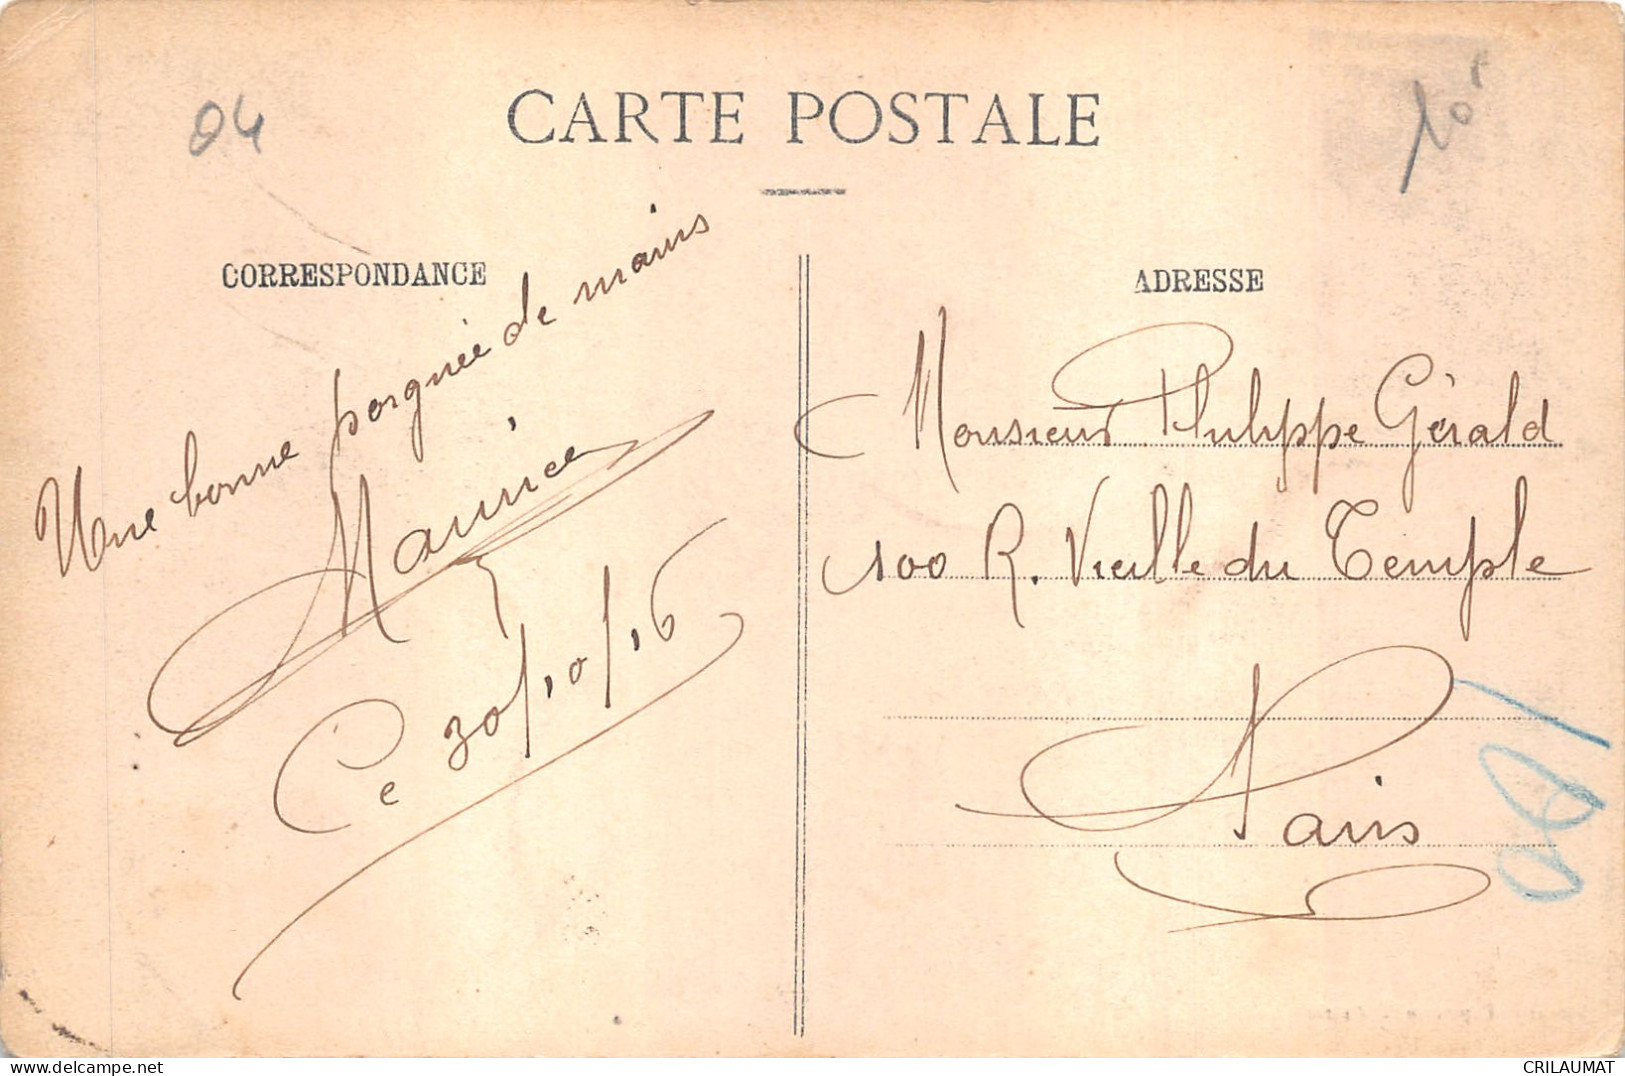 04
CARTE POSTALE
10f
CORRESPONDANCE
Une bonne poignée de mains
Maurice
Ce 30/10/16
ADRESSE
Monsieur Philippe Gérald
100 R. Vieille du Temple
Paris
CRILAUMAT